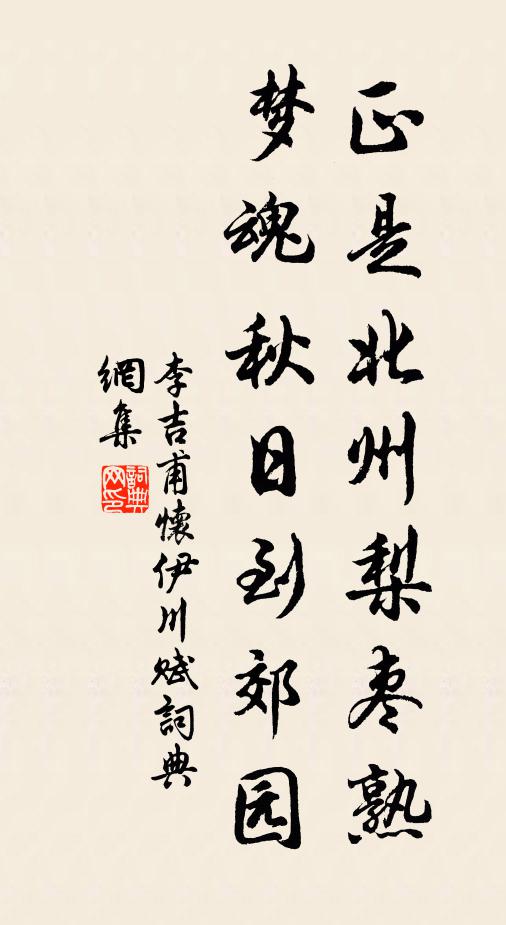 正是北州梨枣熟
梦魂秋日到郊园
李吉甫懷伊川賦詞典
網集
詞典
网印